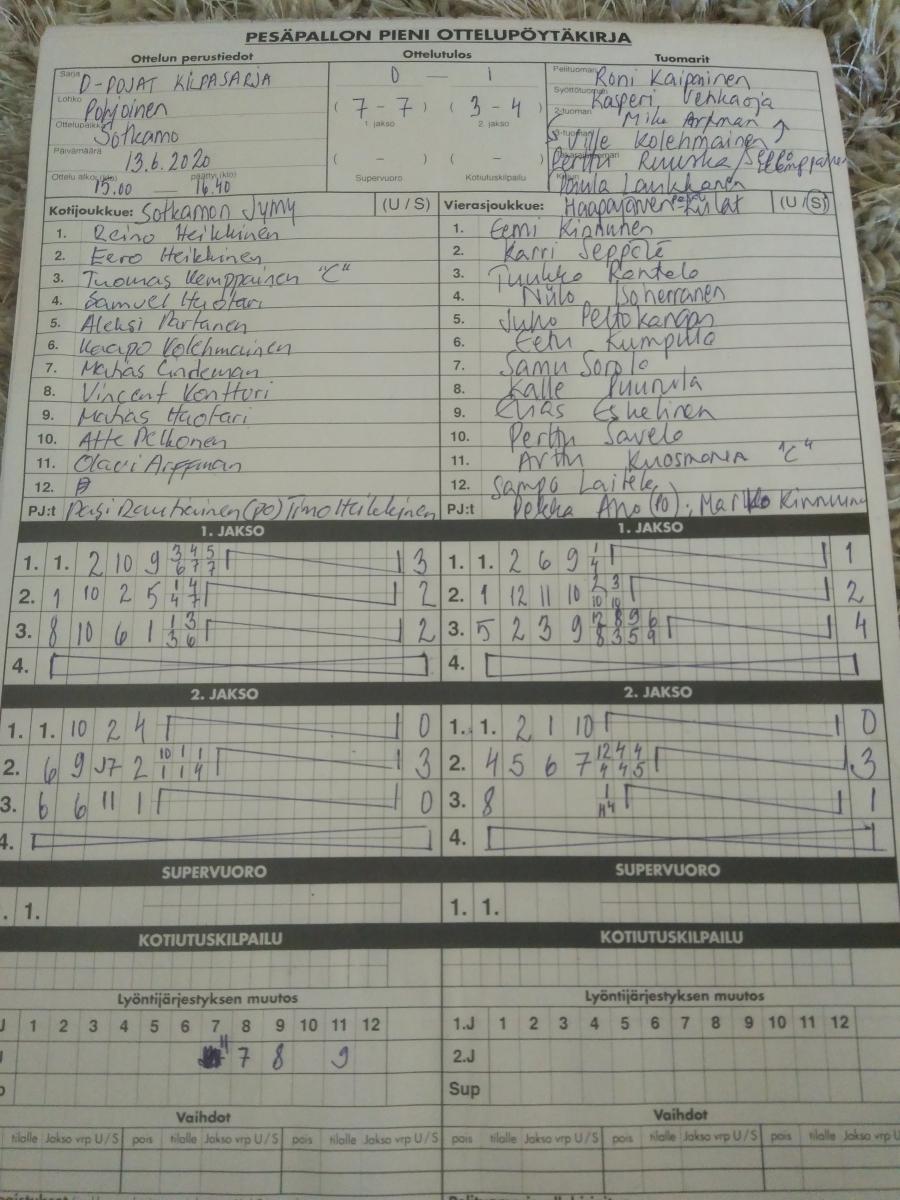 PESÄPALLON PIENI OTTELUPÖYTÄKIRJA
Ottelun perustiedot Ottelutulos Tuomarit
Sarja D-POJAT KILPASARJA 0 — 1 Pelituomari Roni Kaipainen
Lohko Pohjoinen (7 - 7) (3 - 4) Syöttötuomari Kasperi Vehkaoja
1. jakso 2. jakso 2-tuomari Mika Arffman
Ottelupaikka Sotkamo 3-tuomari Ville Kolehmainen
Päivämäärä 13.6.2020 ( - ) ( - ) Perttu Ruuska
Ottelu alkoi (klo) 15.00 — päättyi (klo) 16.40 Supervuoro Kotiutuskilpailu Laukkanen
Kotijoukkue: Sotkamon Jymy (U / S) Vierasjoukkue: Haapajärven Kiilat (U / S)
1. Reino Heikkinen 1. Eemi Kinnunen
2. Eero Heikkinen 2. Karri Seppälä
3. Tuomas Kemppainen "C" 3. Tuukko Rontelo
4. Samuel Huotari 4. Niilo Isoherranen
5. Aleksi Partanen 5. Juho Peltokangas
6. Kaapo Kolehmainen 6. Eetu Kumpula
7. Matias Lindeman 7. Samu Sorola
8. Vincent Konttori 8. Kalle Puurula
9. Matias Huotari 9. Elias Eskelinen
10. Atte Pelkonen 10. Perttu Savela
11. Olavi Arffman 11. Arttu Kuosmanen "C"
12. 12. Sampo Laitela
PJ:t Pasi Rautiainen (po) Timo Heikkinen PJ:t Pekka Aho (po), Marko Kinnunen
1. JAKSO 1. JAKSO
1. 1. 2 10 9 3/6 4/7 5/7 3 1. 1. 2 6 9 1/4 1
2. 1 10 2 5 1/4 4/7 2 2. 1 12 11 10 2/10 3/10 2
3. 8 10 6 1 1/3 3/6 2 3. 5 2 3 9 12/8 8/3 9/5 6/9 4
4. 4.
2. JAKSO 2. JAKSO
1. 1. 10 2 4 0 1. 1. 2 1 10 0
2. 6 9 J7 2 10/1 1/1 1/4 3 2. 4 5 6 7 12/4 4/4 4/5 3
3. 6 6 11 1 0 3. 8 1/H4 1
4. 4.
SUPERVUORO SUPERVUORO
. 1. 1. 1.
KOTIUTUSKILPAILU KOTIUTUSKILPAILU
Lyöntijärjestyksen muutos Lyöntijärjestyksen muutos
J 1 2 3 4 5 6 7 8 9 10 11 12 1.J 1 2 3 4 5 6 7 8 9 10 11 12
11 7 8 9 2.J
Sup
Vaihdot Vaihdot
tilalle Jakso vrp U / S pois tilalle Jakso vrp U / S pois tilalle Jakso vrp U / S pois tilalle Jakso vrp U / S pois tilalle Jakso vrp U / S pois tilalle Jakso vrp U